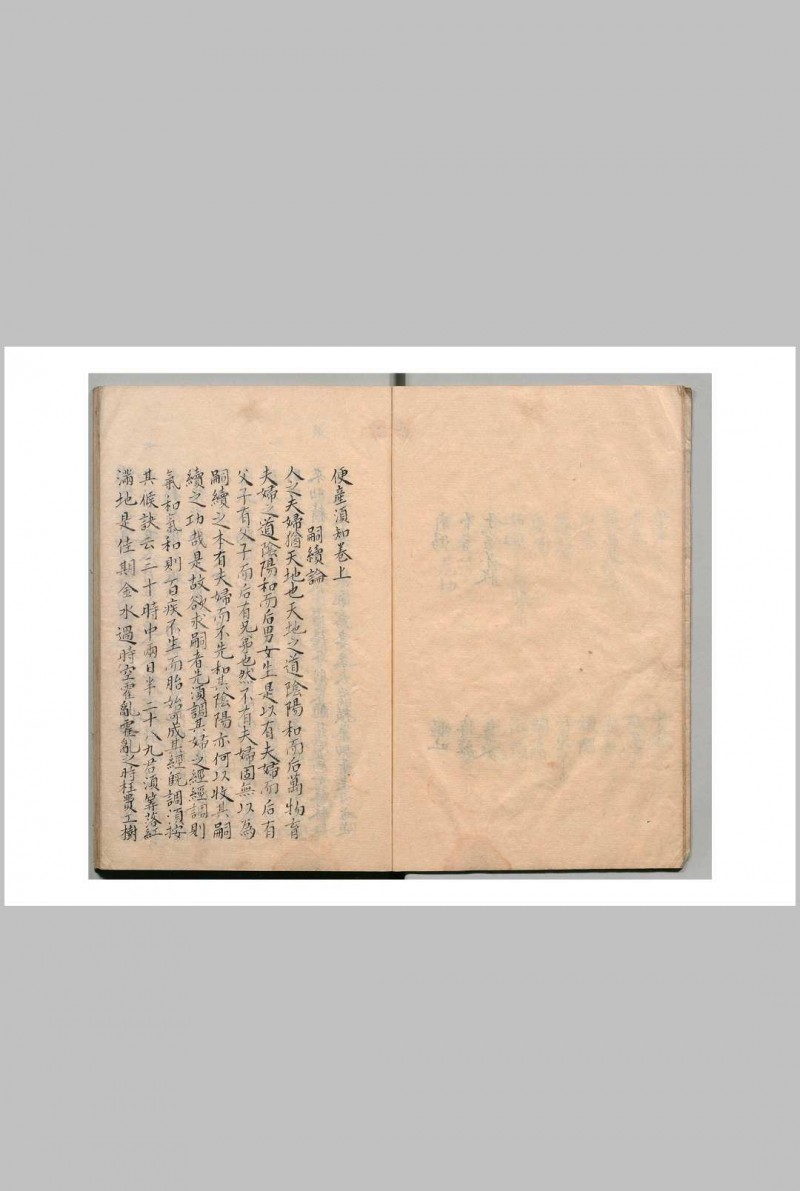 便產須知卷上
嗣續論
人之夫婦猶天地也天地之道陰陽和而后萬物育
夫婦之道陰陽和而后男女生是以有夫婦而后有
父子有父子而后有兄弟也然不有夫婦固無以為
嗣續之本有夫婦而不先和其陰陽亦何以收其嗣
續之功哉是故欲求嗣者先須調其婦之經經調則
氣和氣和則百疾不生而胎始可成其經既調須按
其候訣云三十時中兩日半二十八九君須筭落紅
滿地是佳期金水過時空霍亂霍亂之時枉費工樹